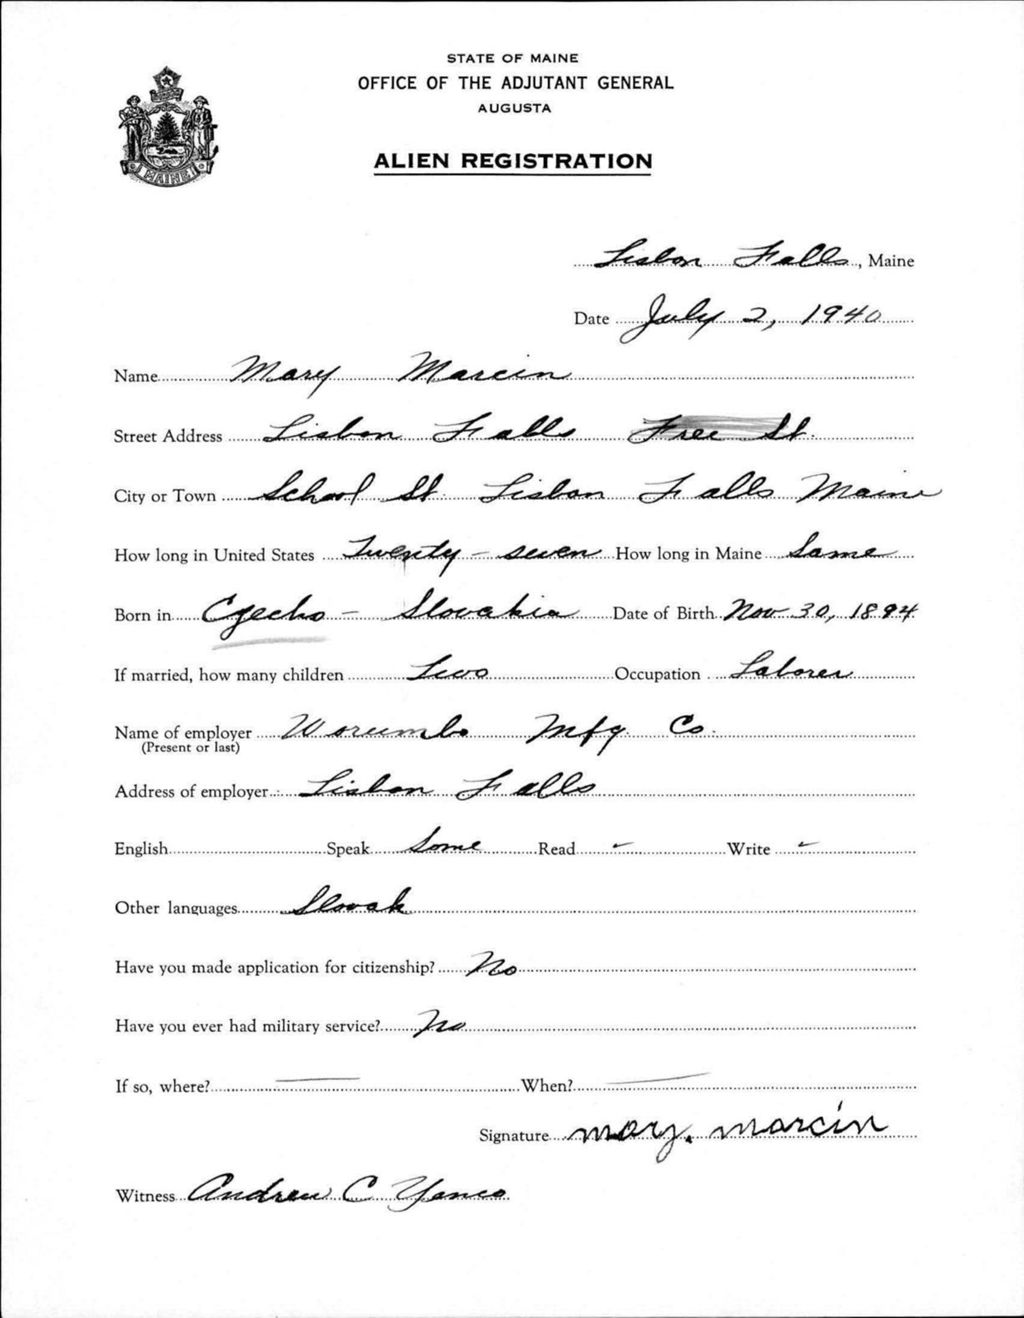 STATE OF MAINE
OFFICE OF THE ADJUTANT GENERAL
AUGUSTA
ALIEN REGISTRATION
MAINE
Lisbon Falls, Maine
Date July 2, 1940
Name Mary Marcin
Street Address Lisbon Falls Free St.
City or Town School St. Lisbon Falls Maine
How long in United States Twenty-seven How long in Maine Same
Born in Czecho-Slovakia Date of Birth Nov. 30, 1894
If married, how many children Two Occupation Laborer
Name of employer Worumbo Mfg Co.
(Present or last)
Address of employer Lisbon Falls
English Speak Some Read - Write -
Other languages Slovak
Have you made application for citizenship? No
Have you ever had military service? No
If so, where? — When? —
Signature mary. marcin
Witness Andrew C Yanco